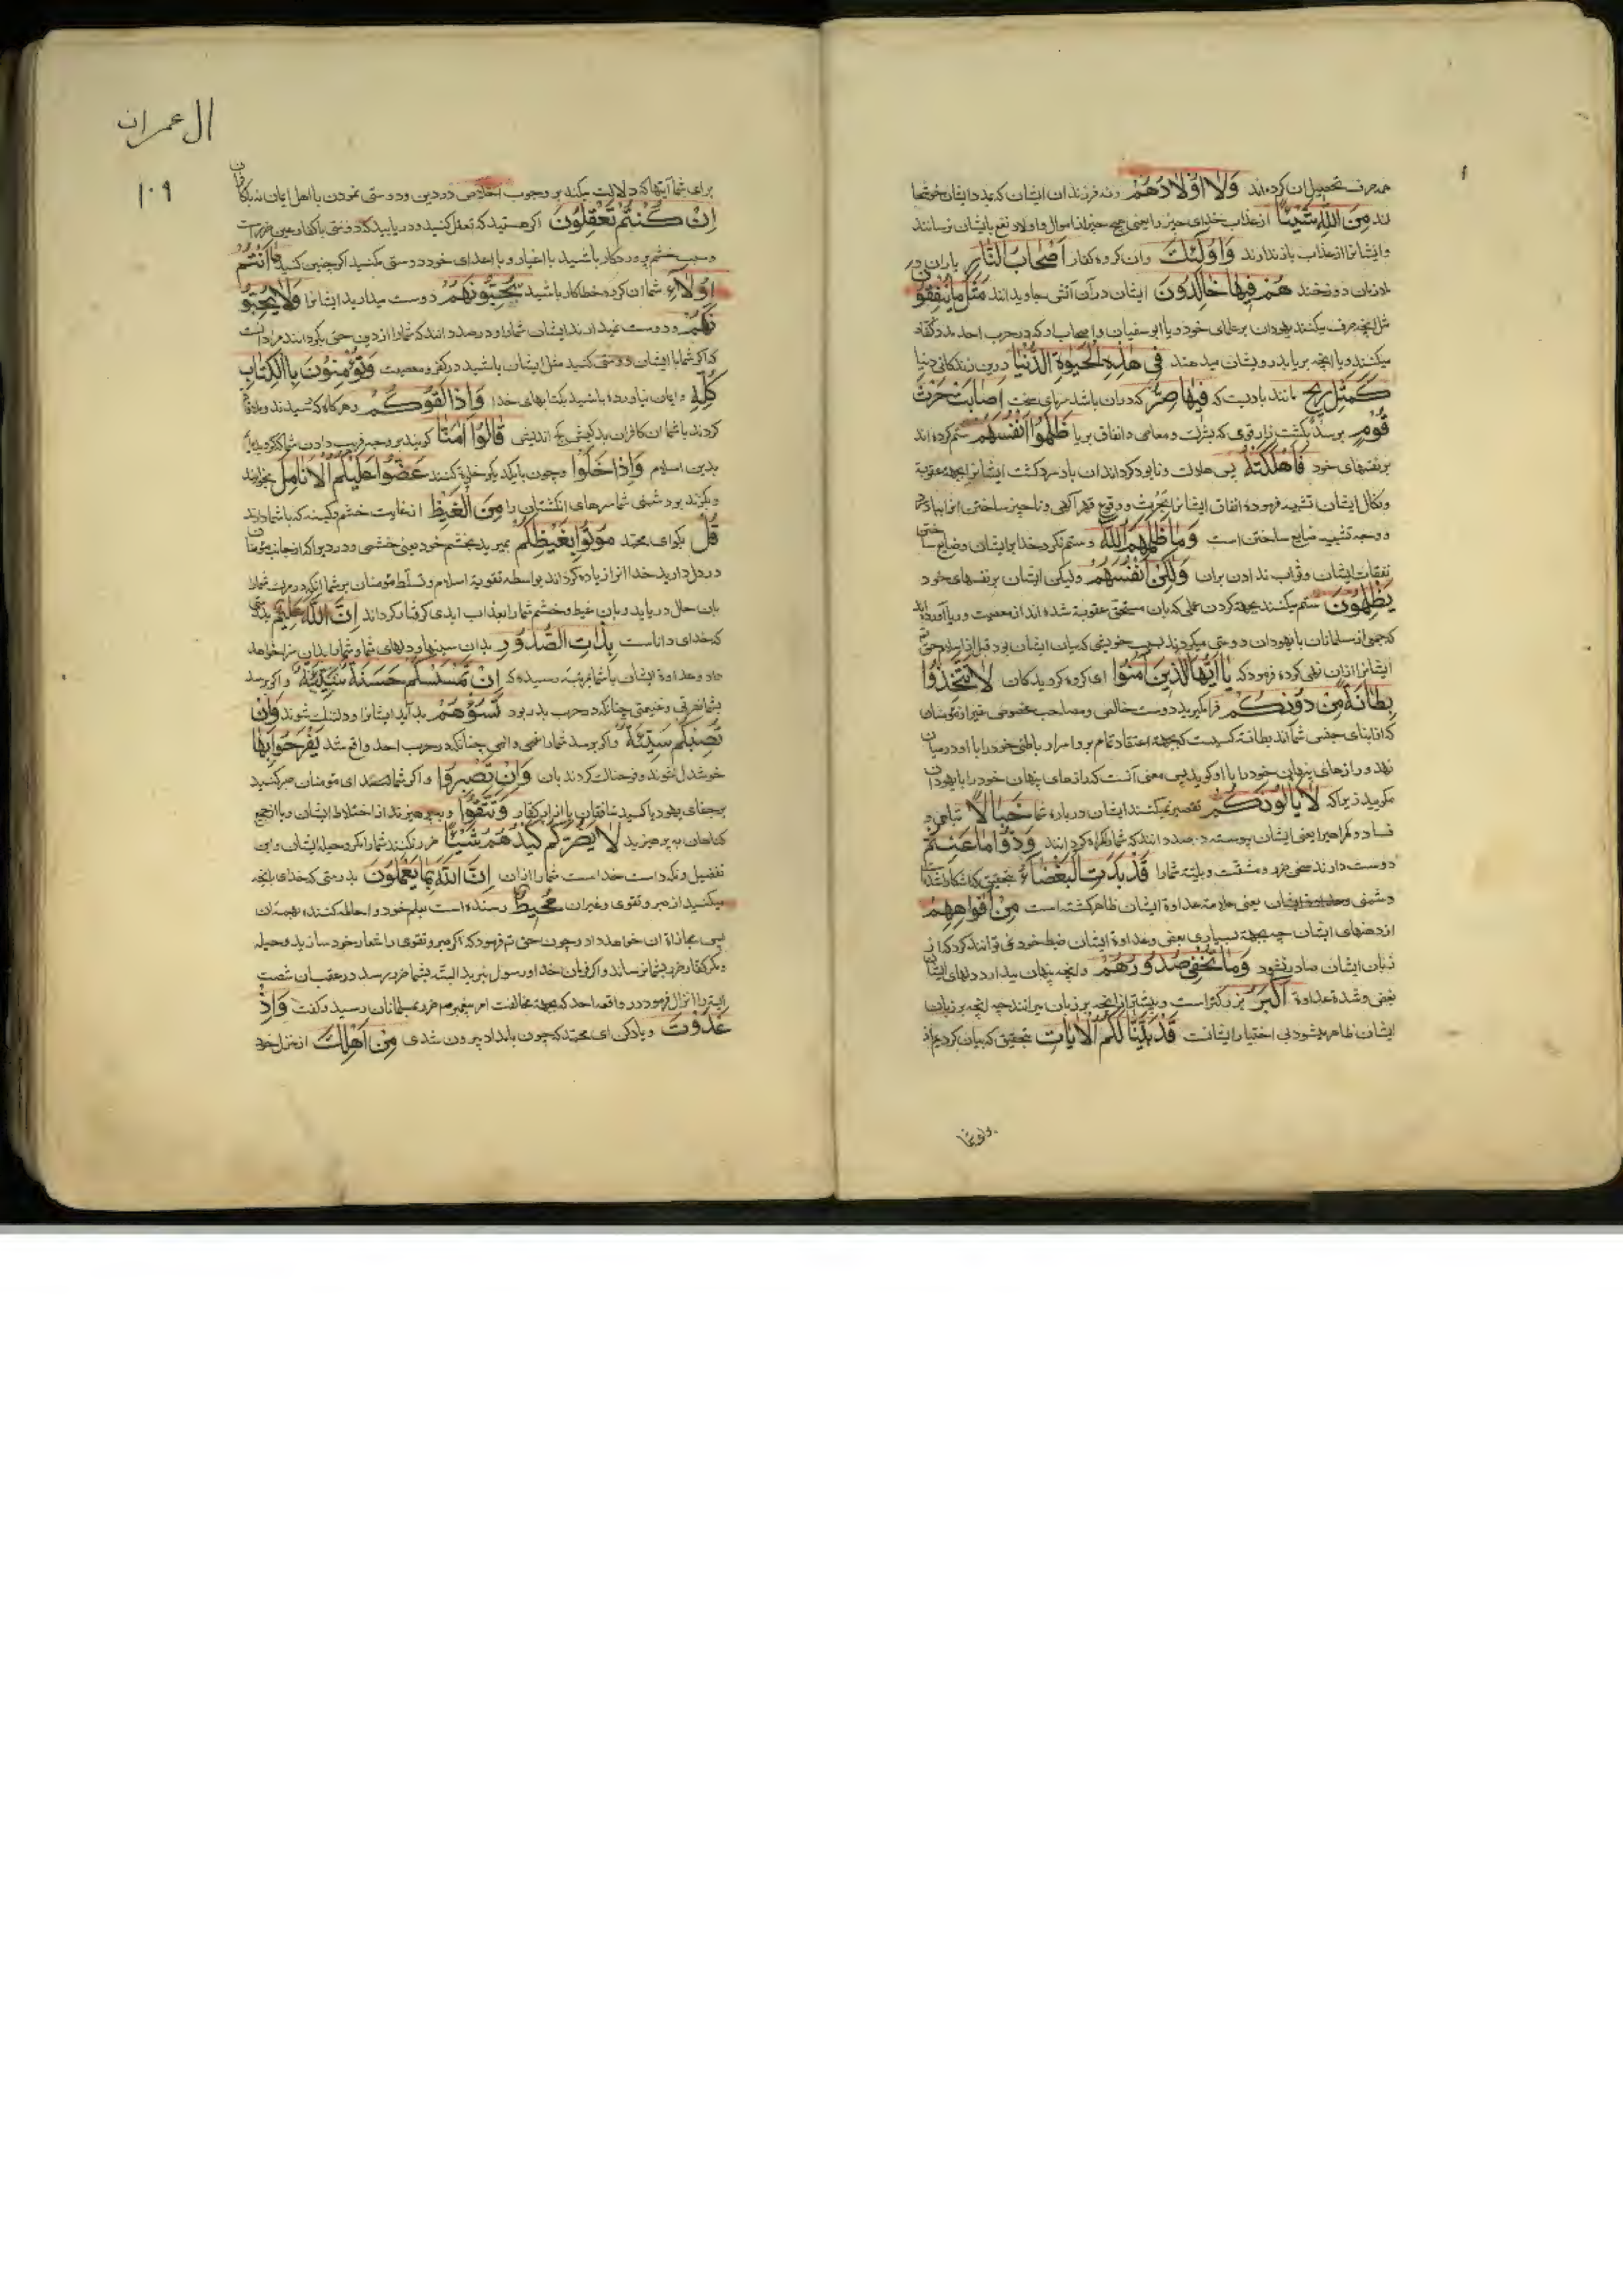 همه صرف تحصیل ان کرده‌اند وَلَا اَوْلَادُهُمْ ونه فرزندان ایشان که بمدد ایشان خوشحا
لند مِنَ اللّٰهِ شَيْئًا از عذاب خدای چیزی را یعنی هیچ چیز از اموال و اولاد نفع بایشان نرسانند
وایشانرا از عذاب باز ندارند وَاُولٰئِكَ وان کروه کفار اَصْحَابُ النَّارِ یاران در
دوزخند هُمْ فِيهَا خَالِدُونَ ایشان در آن آتش جاویدانند مَثَلُ مَا يُنْفِقُونَ
مثل انچه صرف میکنند یهودان بر علمای خود و یا ابوسفیان و اصحاب او که در حرب احد مدد کفار
میکنند و یا انچه بریا بدرویشان میدهند فِي هٰذِهِ الْحَيٰوةِ الدُّنْيَا درین زندکانی دنیا
كَمَثَلِ رِيحٍ مانند بادیست که فِيهَا صِرٌّ که دران باشد سرمای سخت اَصَابَتْ حَرْثَ
قَوْمٍ برسد بکشت زار قومی که بشرک و معاصی و انفاق بریا ظَلَمُوا اَنْفُسَهُمْ ستم کرده‌اند
بر نفسهای خود فَاَهْلَكَتْهُ پس هلاک و نابود کرداند ان باد سرد کشت ایشانرا بجهة عقوبة
ونکال ایشان تشبیه فرموده انفاق ایشانرا بحرث و وقوع قهر آلهی و ناچیز ساختن انرا بباد
و وجه تشبیه ضایع ساختن است وَمَا ظَلَمَهُمُ اللّٰهُ وستم نکرد خدا بر ایشان و ضایع ساختن
نفقات ایشان و ثواب ندادن بران وَلٰكِنْ اَنْفُسَهُمْ ولیکن ایشان بر نفسهای خود
يَظْلِمُونَ ستم میکنند بجهة کردن عملی که بان مستحق عقوبة شده‌اند از معصیت و ریا آورده‌اند
که جمعی از مسلمانان با یهودان دوستی میکردند بسبب خویشی که میان ایشان بود قبل از اسلام حق تع
ایشانرا ازان نهی کرده فرمود که يَا اَيُّهَا الَّذِينَ اٰمَنُوا ای کروه کرویدکان لَا تَتَّخِذُوا
بِطَانَةً مِنْ دُونِكُمْ فرا مکیرید دوست خالص و مصاحب مخصوص غیر از مؤمنان
که از ابنای جنس شمااند بطانة کسیست که بجهة اعتقاد تمام برو اسرار باطنی خود را با او در میان
نهد و رازهای پنهانی خود را با او کوید پس معنی آنست که رازهای پنهان خود را با یهودان
مکویید زیرا که لَا يَاْلُونَكُمْ تقصیر نمیکنند ایشان درباره شما خَبَالًا تباهی و
فساد و کمراهیرا یعنی ایشان پیوسته در صدد انند که شما را کمراه کردانند وَدُّوا مَا عَنِتُّمْ
دوست دارند ضرر و مشقت و بلیه شما را قَدْ بَدَتِ الْبَغْضَاءُ بتحقیق که اشکارا شد
دشمنی ایشان یعنی علامة عداوة ایشان ظاهر کشته است مِنْ اَفْوَاهِهِمْ
از دهنهای ایشان چه بجهة بسیاری بغض و عداوة ایشان ضبط خود نمی توانند کرد که از
زبان ایشان صادر نشود وَمَا تُخْفِي صُدُورُهُمْ وانچه پنهان میدارد دلهای ایشان
بغض و شدة عداوة اَكْبَرُ بزرکتر است و بیشتر از انچه بر زبان میرانند چه انچه بر زبان
ایشان ظاهر میشود بی اختیار ایشانست قَدْ بَيَّنَّا لَكُمُ الْاٰيَاتِ بتحقیق که بیان کردیم از
ال عمران
۱۰۹
برای شما آیتها که دلالت میکند بر وجوب اخلاص در دین و دوستی نمودن با اهل ایمان نه با کافران
اِنْ كُنْتُمْ تَعْقِلُونَ اکر هستید که تعقل کنید و دریابید که دوستی با کفار عین ضرر است
وسبب خشم پروردکار باشید با اغیار و با اعدای خود دوستی مکنید اکر چنین کنید هَا اَنْتُمْ
اُولَاءِ شما ان کروه خطاکار باشید تُحِبُّونَهُمْ دوست میدارید ایشانرا وَلَا يُحِبُّو
نَكُمْ ودوست نمیدارند ایشان شما را و در صدد انند که شما را از دین حق بکردانند مراد انست
که اکر شما با ایشان دوستی کنید مثل ایشان باشید در کفر و معصیت وَتُؤْمِنُونَ بِالْكِتَابِ
كُلِّهِ وایمان نیاورده باشید بکتابهای خدا وَاِذَا لَقُوكُمْ وهرکاه که رسیدند وملاقات
کردند با شما ان کافران بدکیش کج اندیش قَالُوا اٰمَنَّا کویند بر وجه فریب دادن شما که کرویدیم
بدین اسلام وَاِذَا خَلَوْا وچون با یکدیکر خلوة کنند عَضُّوا عَلَيْكُمُ الْاَنَامِلَ بخایند
وبکزند بر دشمنی شما سرهای انکشتان را مِنَ الْغَيْظِ از غایت خشم و کینه که با شما دارند
قُلْ بکو ای محمد مُوتُوا بِغَيْظِكُمْ بمیرید بخشم خود یعنی خشمی و دردیرا که از جانب مؤمنان
در دل دارید خدا انرا زیاده کرداند بواسطه تقویة اسلام و تسلط مؤمنان بر شما تا انکه مرک شما را
بان حال دریابد و بان غیظ و خشم شما را بعذاب ابدی کرفتار کرداند اِنَّ اللّٰهَ عَلِيمٌ بدرستی
که خدای داناست بِذَاتِ الصُّدُورِ بدانچه در سینها و دلهای شما و شما را بدان سزا خواهد
داد و عداوة ایشان با شما بمرتبه رسیده که اِنْ تَمْسَسْكُمْ حَسَنَةٌ سَيِّئَةٌ واکر برسد
بشما نصرتی و غنیمتی چنانکه در حرب بدر بود تَسُؤْهُمْ بد آید ایشانرا و دلتنک شوند وَاِنْ
تُصِبْكُمْ سَيِّئَةٌ واکر برسد شما را غمی و المی چنانکه در حرب احد واقع شد يَفْرَحُوا بِهَا
خوشدل شوند و فرحناک کردند بان وَاِنْ تَصْبِرُوا واکر شما ای مؤمنان صبر کنید
بر جفای یهود یا کید منافقان یا ازار کفار وَتَتَّقُوا وبپرهیزید از اختلاط ایشان و یا از جمیع
کناهان بپرهیزید لَا يَضُرُّكُمْ كَيْدُهُمْ شَيْئًا ضرر نکند شما را مکر و حیله ایشان و این
تفضیل و نکه داشت خداست شما را از ان اِنَّ اللّٰهَ بِمَا يَعْمَلُونَ بدرستی که خدای بانچه
میکنید از صبر و تقوی و غیران مُحِيطٌ رسنده است بعلم خود و احاطه کننده بهمه ان
پس مجازاة ان خواهد داد و چون حق تع فرمود که اکر صبر و تقوی را شعار خود سازید و حیله
و مکر کفار ضرر بشما نرساند و اکر فرمان خدا و رسول نبرید البته بشما ضرر برسد در عقب ان شصت
آیترا انزال فرمود در واقعه احد که بجهة مخالفت امر پیغمبر ص ضرر بمسلمانان رسید و کفت وَاِذْ
غَدَوْتَ ویاد کن ای محمد که چون بامداد بیرون شدی مِنْ اَهْلِكَ از منزل خود